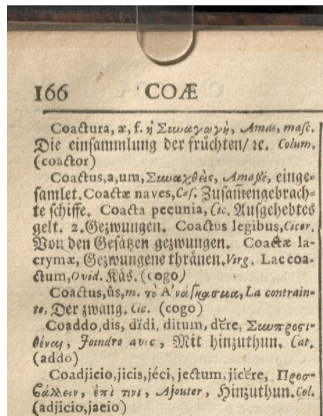 166 COÆ
Coactura, æ, f. ἡ Συναγωγὴ, Amas, masc.
Die einsammlung der früchten/ ꝛc. Colum.
(coactor)
Coactus, a, um, Συναχθεὶς, Amassé, einge-
samlet. Coactæ naves, Cæs. Zusam̄engebrach-
te schiffe. Coacta pecunia, Cic. Aufgehebtes
gelt. 2. Gezwungen. Coactus legibus, Cicer.
Von den Gesätzen gezwungen. Coactæ la-
crymæ, Gezwungene thränen. Virg. Lac coa-
ctum, Ovid. Käs. (cogo)
Coactus, ûs, m. τὸ Ἀνάγκασμα, La contrain-
te, Der zwang. Cic. (cogo)
Coaddo, dis, dĭdi, ditum, dĕre, Συμπροστι-
θέναι, Joindre avec, Mit hinzuthun. Cat.
(addo)
Coadjicio, jicis, jéci, jectum, jicĕre, Προσ-
βάλλειν, ἐπί τινι, Ajouter, Hinzuthun. Col.
(adjicio, jacio)